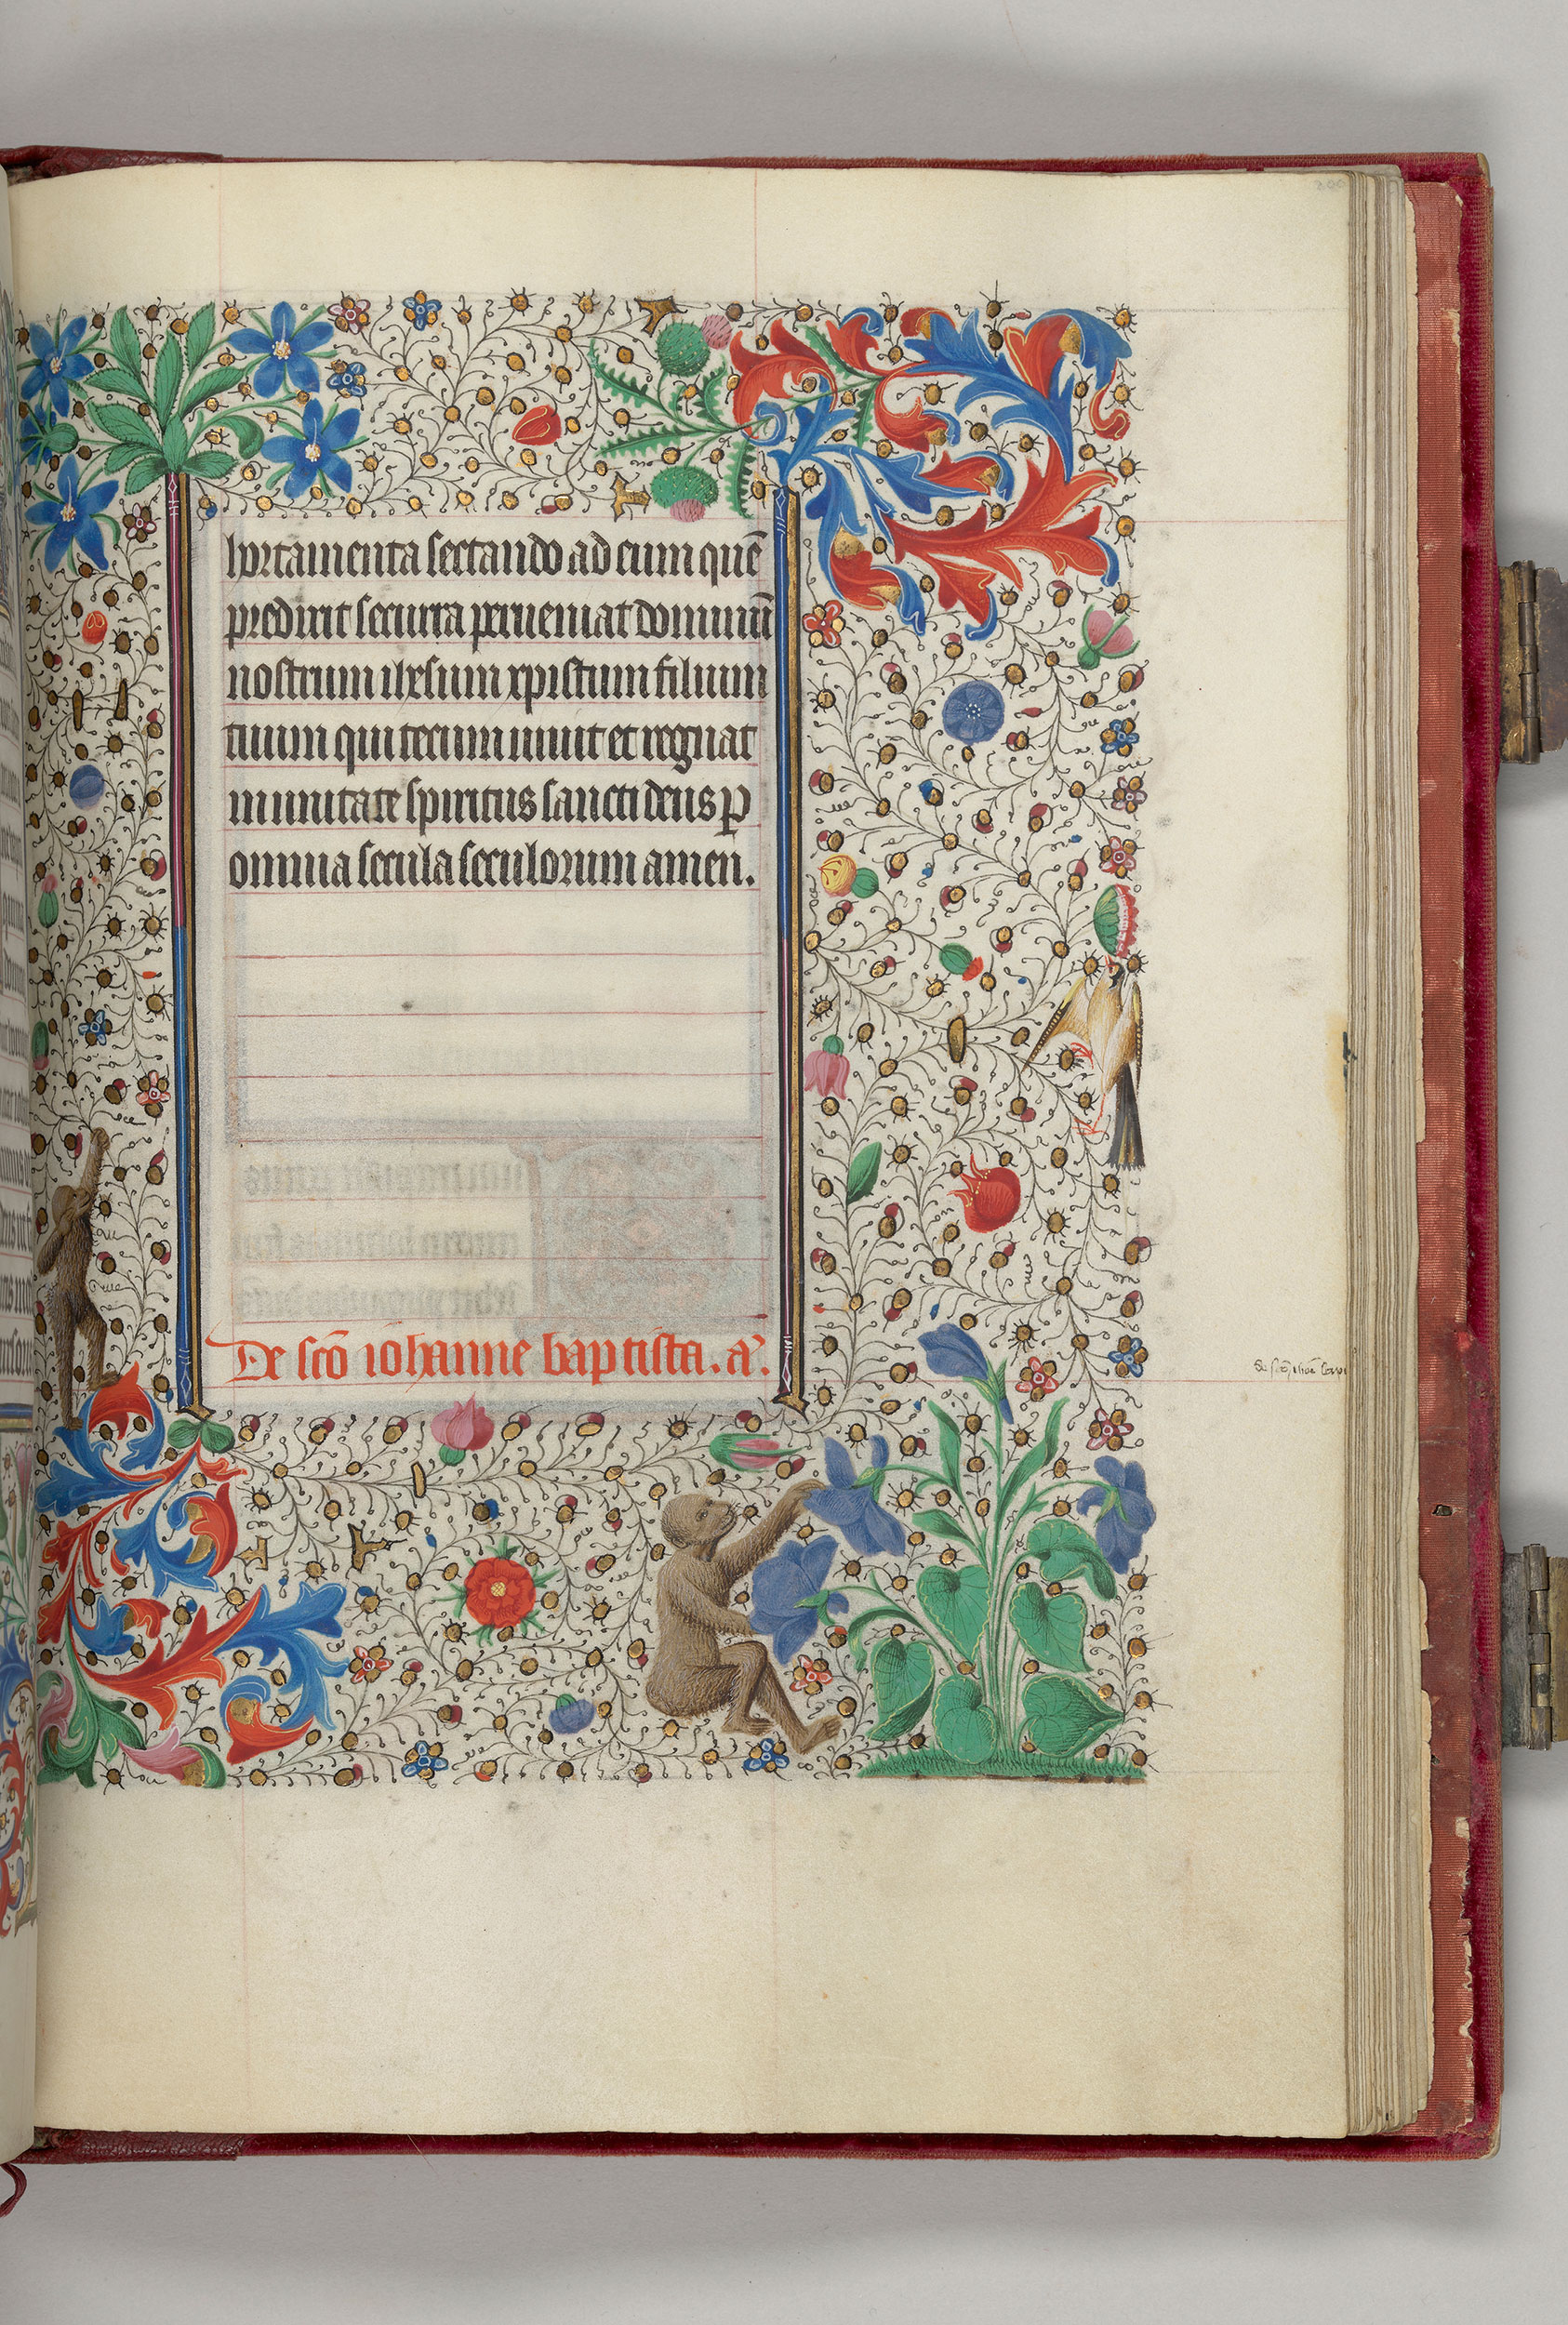 hortamenta sectando ad eum quē
predixit secura perueniat dominū
nostrum ihesum xpistum filium
tuum qui tecum uiuit et regnat
in unitate spiritus sancti deus ꝑ
omnia secula seculorum amen.
De scō iohanne baptista. añ.